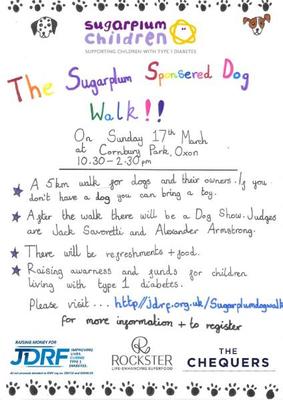 sugarplum
children
SUPPORTING CHILDREN WITH TYPE 1 DIABETES
The Sugarplum Sponsered Dog
Walk!!
On Sunday 17th March
at Cornbury Park, Oxon
10.30-2.30pm
A 5km walk for dogs and their owners. If you
don't have a dog you can bring a toy.
After the walk there will be a Dog Show. Judges
are Jack Savoretti and Alexander Armstrong.
There will be refreshments + food.
Raising awarness and funds for children
living with type 1 diabetes.
Please visit... http://jdrf.org.uk/Sugarplumdogwalk
for more information + to register
RAISING MONEY FOR
JDRF IMPROVING
LIVES.
CURING
TYPE 1
DIABETES.
ROCKSTER
LIFE-ENHANCING SUPERFOOD
THE
CHEQUERS